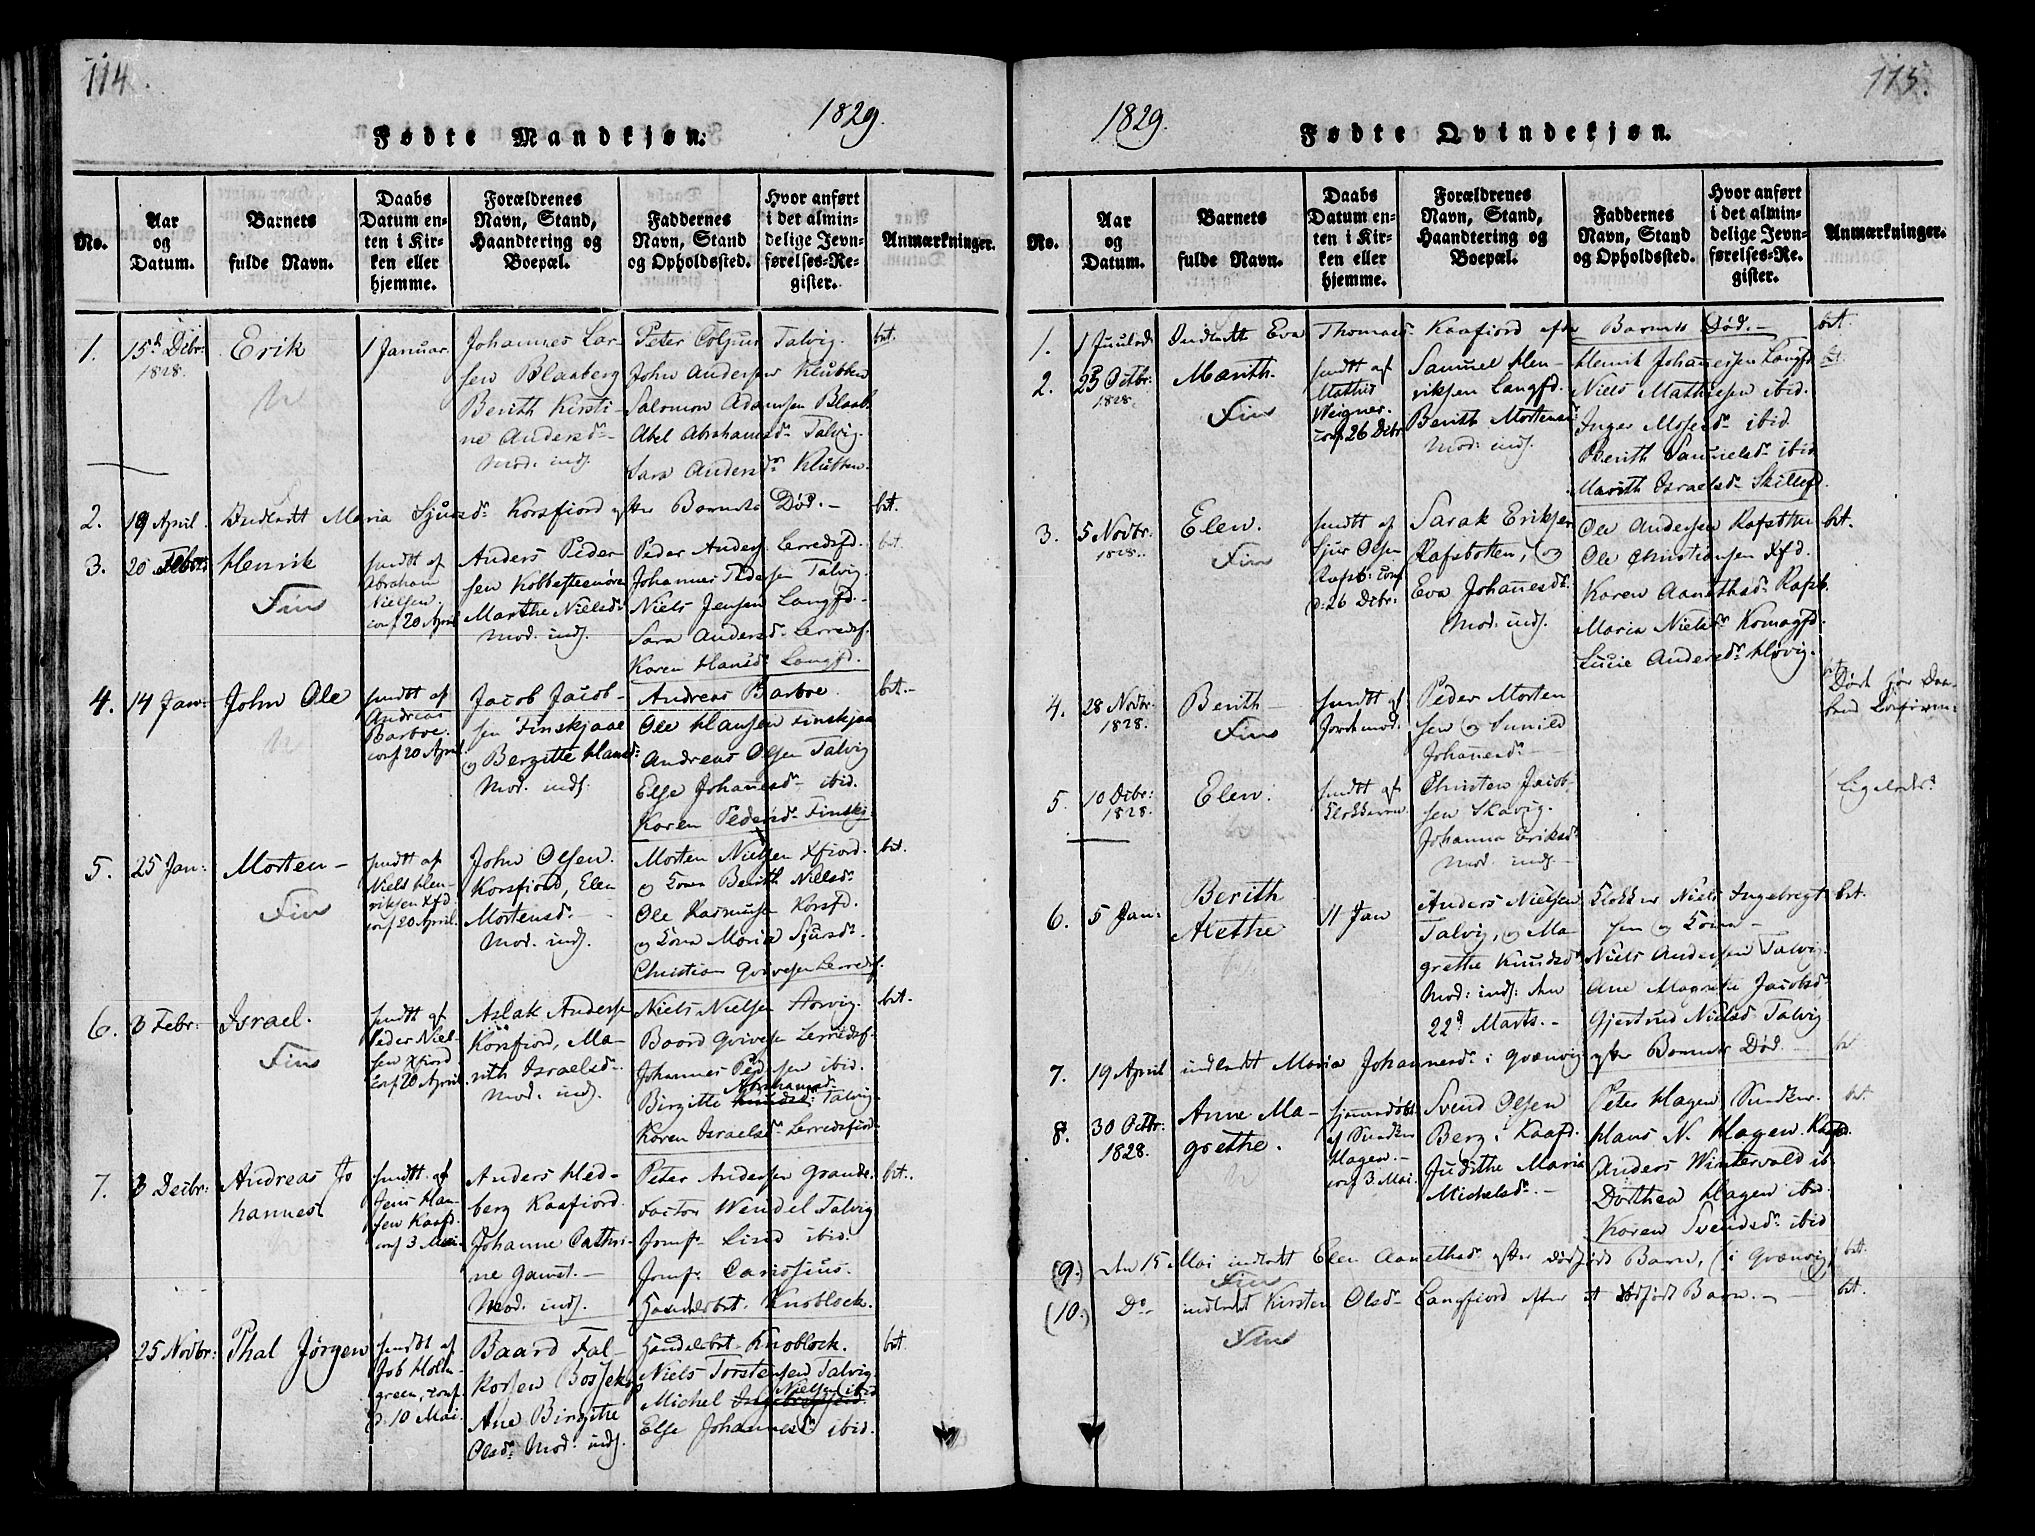 114.
1829.
Fødte Mandkjøn.
No.
Aar og Datum.
Barnets fulde Navn.
Daabs Datum enten i Kirken eller hjemme.
Forældrenes Navn, Stand, Haandtering og Boepæl.
Faddernes Navn, Stand og Opholdssted.
Hvor anført i det almindelige Jevnførelses-Register.
Anmærkninger.
1.
15d Dibr:
1828.
Erik
1 Januar.
Johannes Lar-
sen Blaaberg
Berith Kirsti-
ne Andersd-
Mod. ind.
Peter
Talvig.
John Andersen Klubben
Salomon Adamsen Blaab.
Abel Abrahamsd. Talvig.
Sara Andersd. Klubben.
bet.
2.
19 April.
Indledt Maria Sjursd. Korsfjord efter Barnets Død.-
bet.
3.
20
Henrik
Fin
hmdt af
Abraham
Nielsen
conf 20 April
Anders Peder-
sen
Marthe Nielsd.
Mod. ind.
Peder Anders. Lerredsfd.
Johannes Pedersen Talvig
Niels Jensen Langfd.
Sara Andersd. Lerredsf.
Karen Hansd. Langfd.
bet
4.
14 Jan:
John Ole
hmdt af
Andreas
Barboe.
conf 20 April.
Jacob Jacob-
sen Finskjaae
og Bergitte Hansd:
Mod. ind.
Andreas Barboe.
Ole Hansen Finskjaa
Andreas Olsen Talvig
Else Johannesd- ibid.
Karen Pedersd- Finskj:
bet.-
5.
25 Jan:
Morten-
Fin
hmdt af
Niels Hen-
riksen Xfd
conf 20 April.
John Olsen.
Korsfiord, Elen
Mortensd.-
Mod. ind.
Morten Nielsen Xfiord.
og Kone Berith Nielsd.
Ole Rasmusen Korsfd.
og Kone Maria Sjursd.
Christian Qvivesen Lerredsf.
bet.
6.
3 Febr:
Israel.
Fin
hmdt af
Peder Niel-
sen Xfiord
conf 20 April
Aslak Anderse
Korsfiord, Ma-
rith Israelsd.-
Mod. ind.
Niels Nielsen
Baard Qvivese Lerredsf.
Johannes Pedersen ibid.
Abrahamsd.
Birgitte Knudsd: Talvig
Karen Israelsd. Lerredsfiord.
bet.
7.
3 Decbr:
Andreas Jo
hannes
hmdt. af
Jens Han-
sen Kaafd.
conf 3 Mai.
Anders Hed-
berg Kaafiord.
Johanne Cathri-
ne
Mod. ind.
Peter Andersen
Factor Wendel Talvig
Jomf. Lind ibid.
Jomf.
Handelsbet. Knoblock.
bet..
25 Novbr:
Thal Jørgen
hmdt af
Job Holm
green, conf.
d. 10 Mai.
Baard Fal-
kosen Bossekop
Ane Birgithe
Olsd. Mod: ind.
Handelsbet. Knoblock.
Niels Torstensen Talvig
Nielsen ibid
Michel Ingebrigtsen.
Else Johannesd. ibid.
bet.
115.
1829.
Fødte Qvindekjøn.
No.
Aar og Datum.
Barnets fulde Navn.
Daabs Datum enten i Kirken eller hjemme.
Forældrenes Navn, Stand, Haandtering og Boepæl.
Faddernes Navn, Stand og Opholdssted.
Hvor anført i det almindelige Jevnførelses-Register.
Anmærkninger.
1.
1 Juuled.
Indledt Eva Thomasd. Kaafiord efter Barnets Død.-
bet.
2.
25 Octbr:
1828.
Marith.
Fin
hmdt af
Mathis
Weigner.
conf 26 Dibr
Samuel Hen-
riksen Langfd.
Berith Mortensd:
Mod: ind.
Henrik Johannesen Langfd
Niels Mathisen ibid.
Inger Mosesd. ibid.
Berith Samuelsd. ibid
Marith Israelsd. Skillefd.
bet.
3.
5 Novbr:
1828.
Elen.
Fin
hmdt af
Sjur Olsen
Rafsb: conf
d: 26 Dibr:
Sarak Eriksen
Rafsbotten, og
Eva Johannesd.
Mod. ind.
Ole Andersen Rafsbotten
Ole Christiansen Xfd.
Karen Aanethsd. Rafsb.
Maria Nielsd. Komagfd.
Lucie Andersd. Høvig.
bet.
4.
28 Novbr:
1828.
Berith
Fin
hmdt af
Jordemod:
Peder Morten
sen og Sunild
Johannesd.
Død før Daa-
ben Confirm:
5.
10 Dibr:
1828.
Elen.
hmdt af
Klokkeren
Christen Jacob-
sen Skavig.
Johanna Eriksd.
Mod. ind.
Ligeledes
6.
5 Jan:
Berith
Alethe
11 Jan
Anders Nielsen
Talvig, og Ma-
grethe Knudsd
Mod: ind: den
22d Marts.-
Klokker Niels Ingebregt
sen og Kone-
Niels Andersen Talvig.
Ane Magrethe Jacobsd.
Gjertrud Nielsd. Talvig
bet.
7.
19 April
indledt Maria Johannesd. i Qvænvig efter Barnets Død.
bet
8.
30 Octbr:
1828.
Anne Ma-
grethe.
hjemmedøbt
af Snedker
Hagen.-
conf 3 Mai.
Svend Olsen
Berg i Kaafd.
Judithe Maria
Michelsd.-
Peter Hagen Snedker
Hans N. Hagen Kaafd.
Anders Wintervold ib
Dorthea Hagen ibid.
Karen Svendsd. ibid
bet.
(9.)
den 15. Mai indledt Elen Aanethsd. efter dødfødt Barn, (i Qvænvig)
bet.
Fin
(10.)
Do
indledt Kirsten Olsd- Langfiord efter et dødfødt Barn.-
bet.
Fin